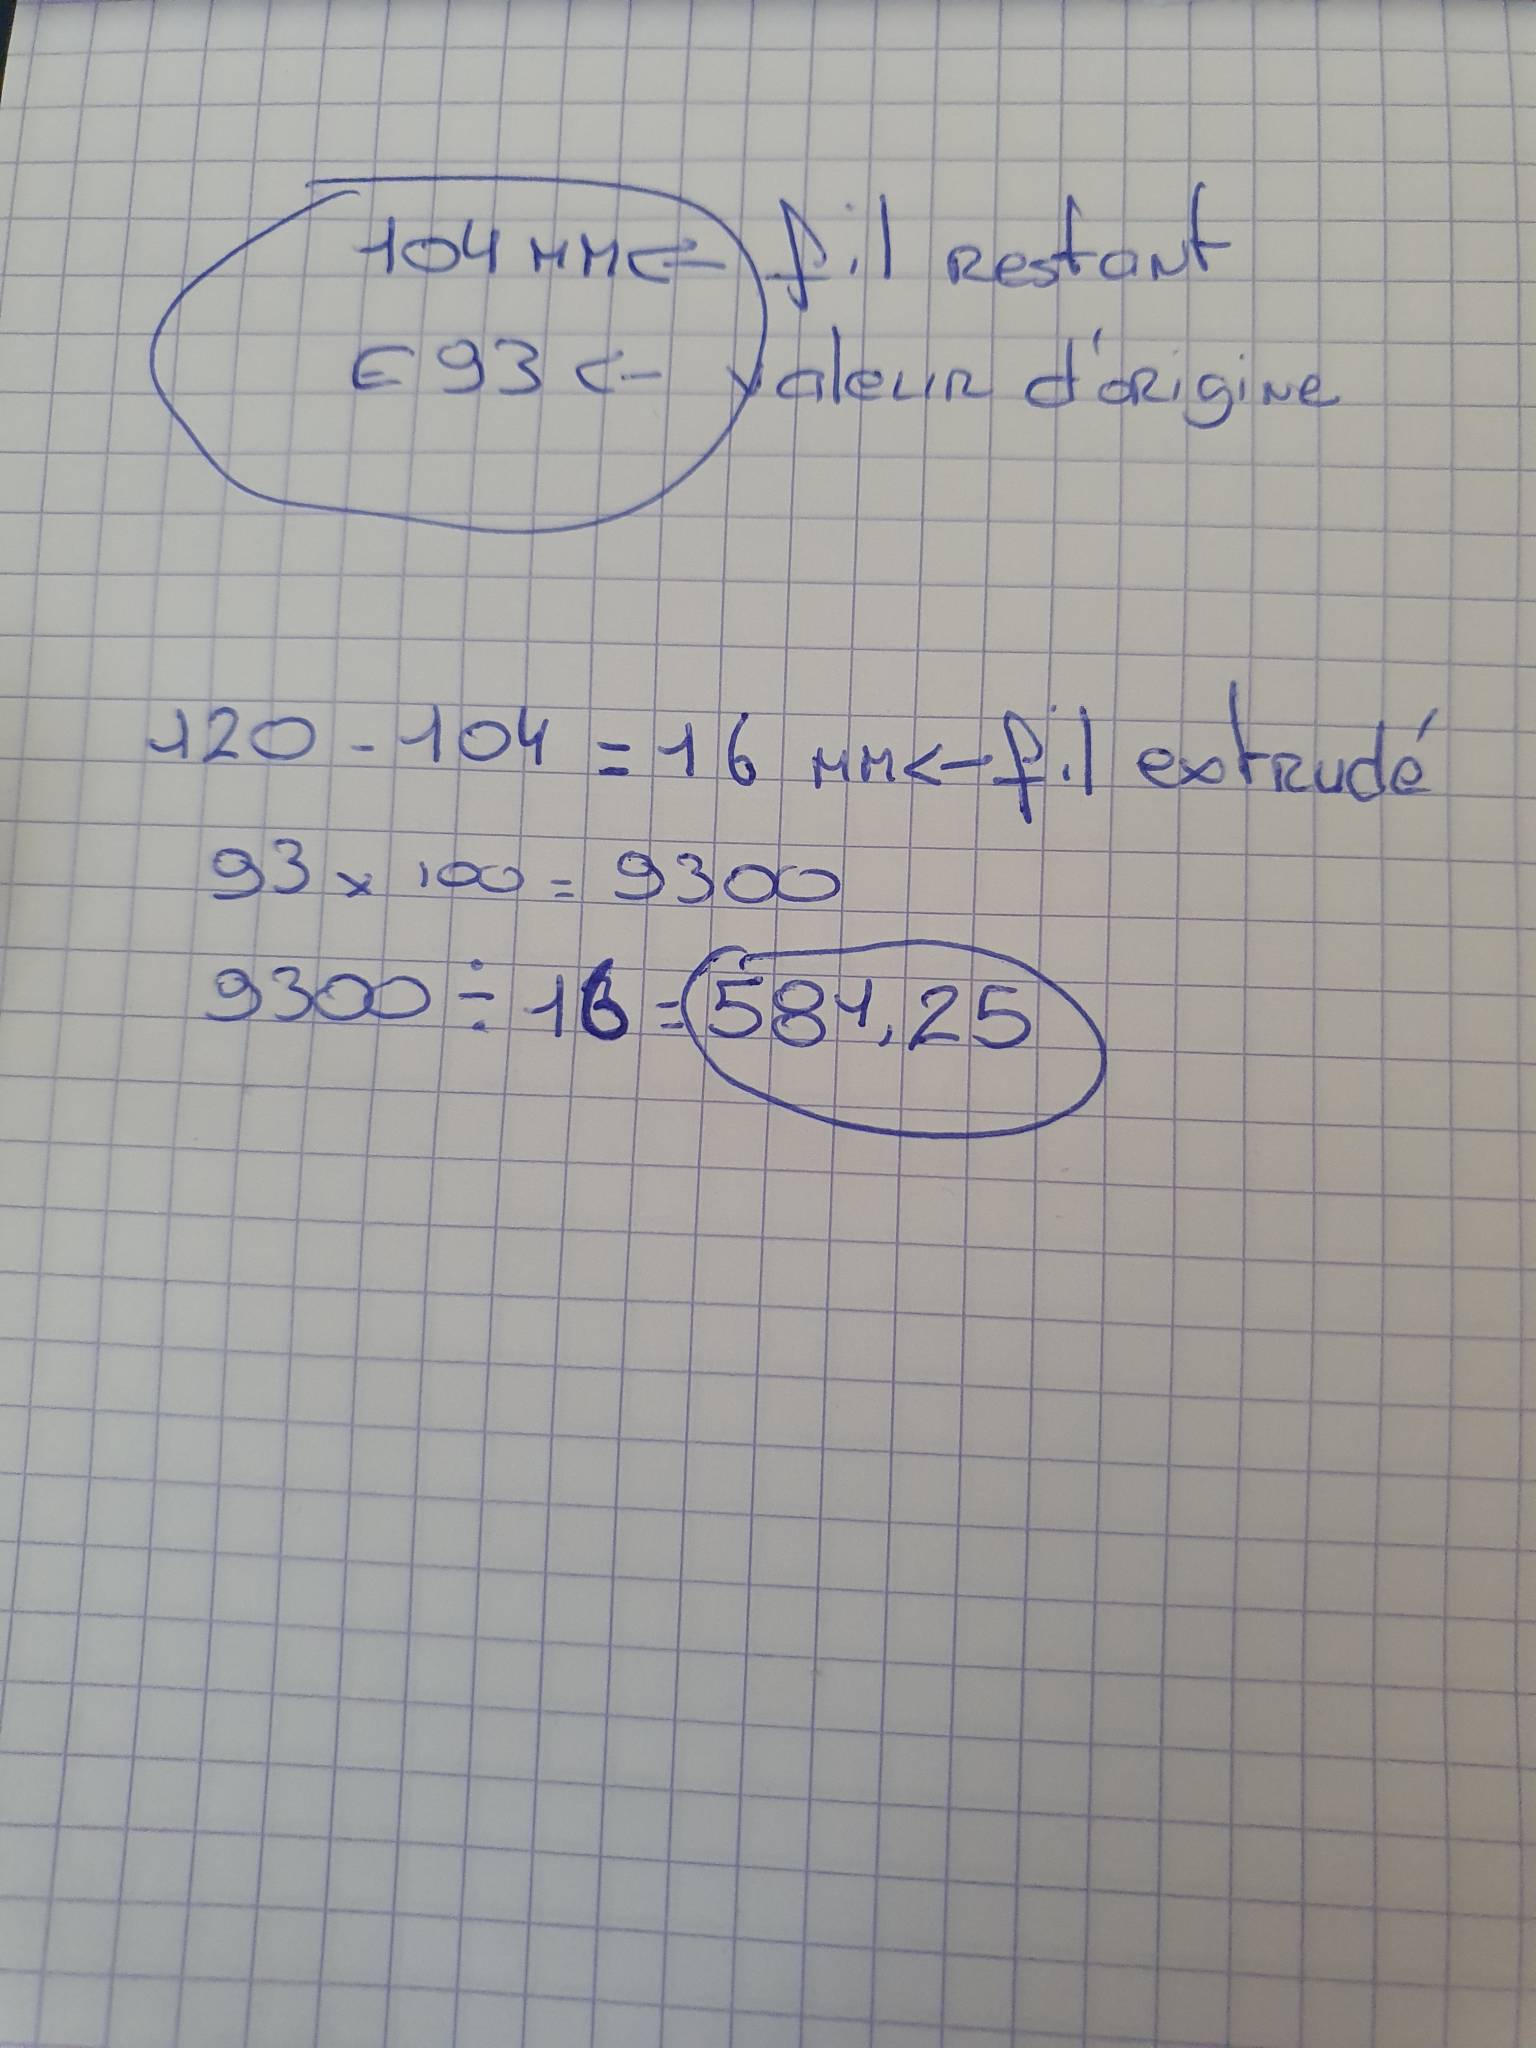 104 mm <- fil restant
E93 <- valeur d'origine
120 - 104 = 16 mm <- fil extrudé
93 x 100 = 9300
9300 ÷ 16 = 584,25